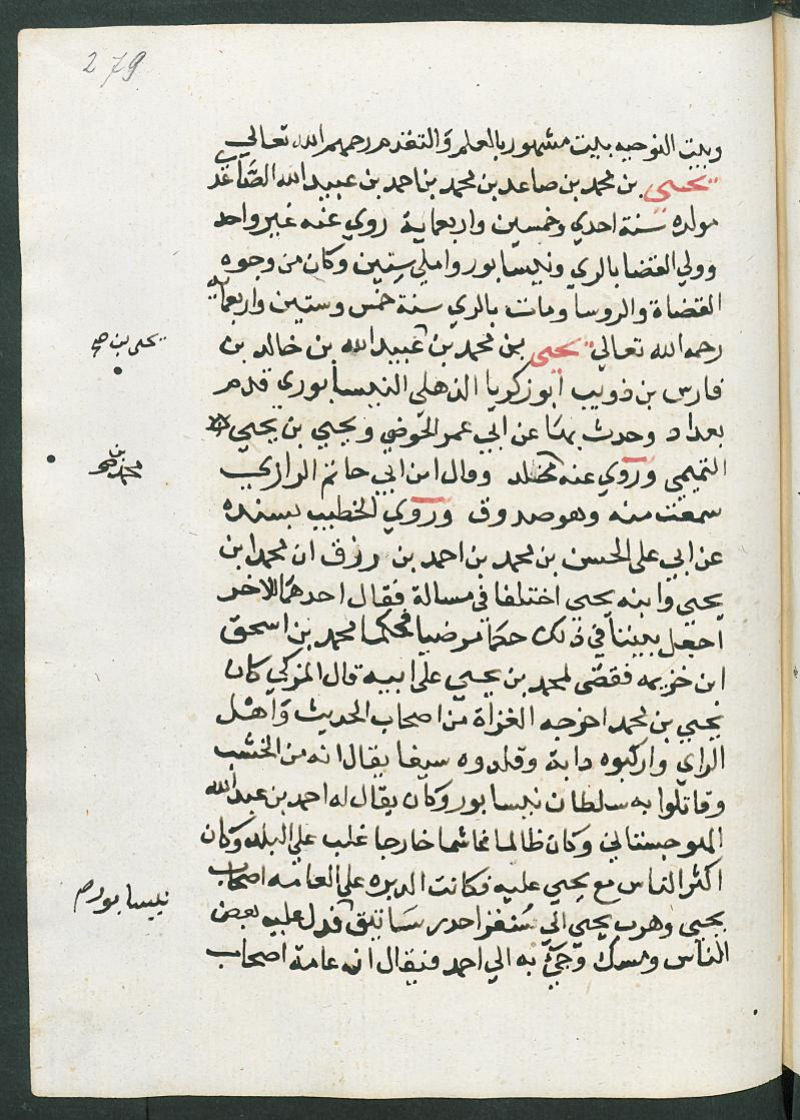 279
وبيت النوحيه بيت مشهور بالعلم والتقدم رحمهم الله تعالي
يحيي بن محمد بن صاعد بن محمد بن احمد بن عبيد الله الصاعدي
مولده سنة احدي وخمسين واربعماية روي عنه غير واحد
وولي القضا بالري ونيسابور واملي سنين وكان من وجوه
القضاة والروسا ومات بالري سنة خمس وستين واربعماية
رحمه الله تعالي يحيى بن محمد بن عبيد الله بن خالد بن
فارس بن ذويب ابو زكريا الذهلي النيسابوري قدم
بغداد وحدث بها عن ابي عمر الحوضي ويحيي بن يحيي
التميمي وروي عنه مخلد وقال ابن ابي حاتم الرازي
سمعت منه وهو صدوق وروي الخطيب بسنده
عن ابي علي الحسن بن محمد بن احمد بن رزق ان محمد ابن
يحيي وابنه يحيي اختلفا في مسالة فقال احدهما للاخر
اجعل بيننا في ذلك حكما فرضيا محمد بن اسحق
ابن خزيمه فقضى لمحمد بن يحيي علي ابيه قال المزكي كان
يحيي بن محمد اخرجه الغزاة من اصحاب الحديث واهل
الراي واركبوه دابة وقلدوه سيفا يقال انه من الخشب
وقاتلوا به سلطان نيسابور وكان يقال له احمد بن عبد الله
وكان ظالما غاشما خارجا غلب علي البلد وكان
اكثر الناس مع يحيي عليه فكانت الدبره علي العامه اصحاب
يحيي وهرب يحيي الي فدل عليه بعض
الناس ومسك وجيء به الي احمد فيقال انه عامة اصحاب
يحيى بن
بن
محمد
نيسابور